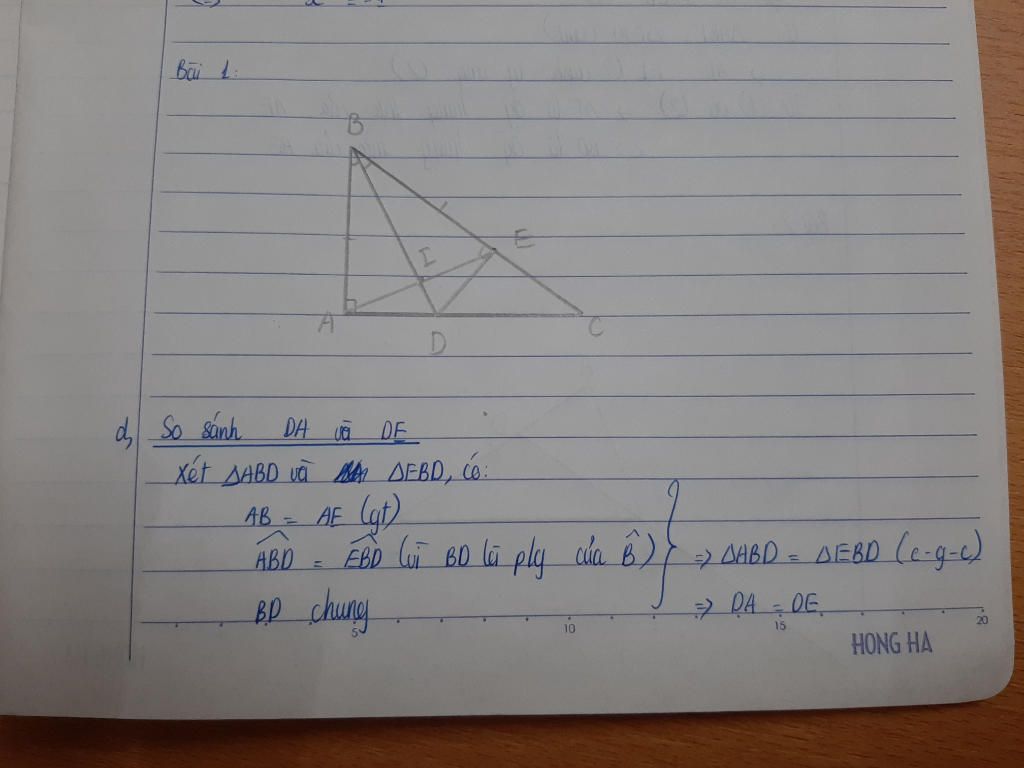 Bài 1:
B
E
I
A
D
C
d, So sánh DA và DE
Xét ΔABD và ΔEBD, có:
AB = AE (gt)
ABD = EBD (vì BD là plg của B̂) => ΔABD = ΔEBD (c-g-c)
BD chung => DA = DE
5 10 15 20
HONG HA